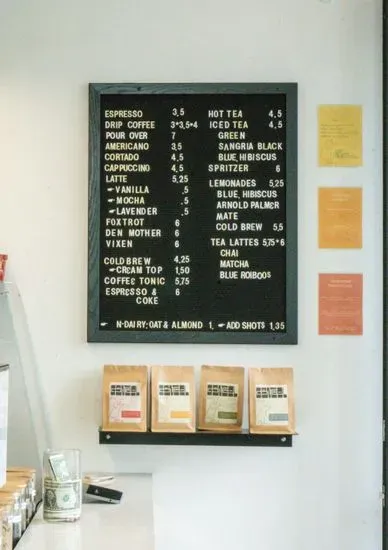 ESPRESSO 3,5
DRIP COFFEE 3*3,5*4
POUR OVER 7
AMERICANO 3,5
CORTADO 4,5
CAPPUCCINO 4,5
LATTE 5,25
☛VANILLA ,5
☛MOCHA ,5
☛LAVENDER ,5
FOXTROT 6
DEN MOTHER 6
VIXEN 6
COLD BREW 4,25
☛CREAM TOP 1,50
COFFEE TONIC 5,75
ESPRESSO & 6
COKE
HOT TEA 4,5
ICED TEA 4,5
GREEN
SANGRIA BLACK
BLUE HIBISCUS
SPRITZER 6
LEMONADES 5,25
BLUE HIBISCUS
ARNOLD PALMER
MATE
COLD BREW 5,5
TEA LATTES 5,75*6
CHAI
MATCHA
BLUE ROIBOOS
☛ N-DAIRY: OAT & ALMOND 1, ☛ ADD SHOTS 1,35